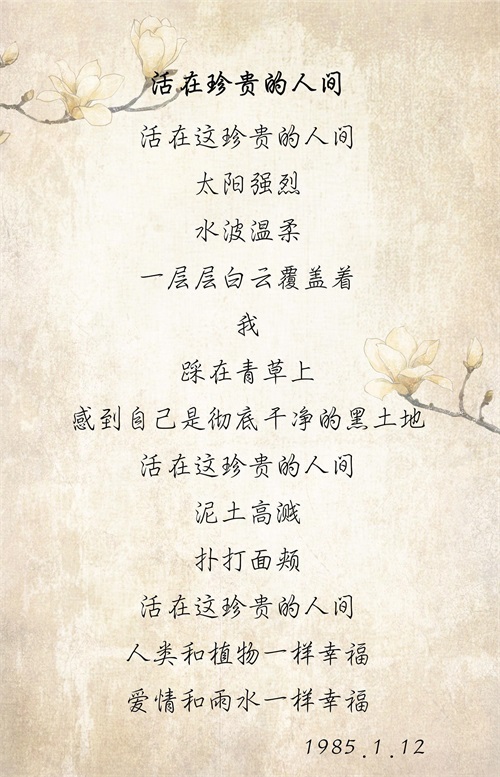 活在珍贵的人间
活在这珍贵的人间
太阳强烈
水波温柔
一层层白云覆盖着
我
踩在青草上
感到自己是彻底干净的黑土地
活在这珍贵的人间
泥土高溅
扑打面颊
活在这珍贵的人间
人类和植物一样幸福
爱情和雨水一样幸福
1985.1.12